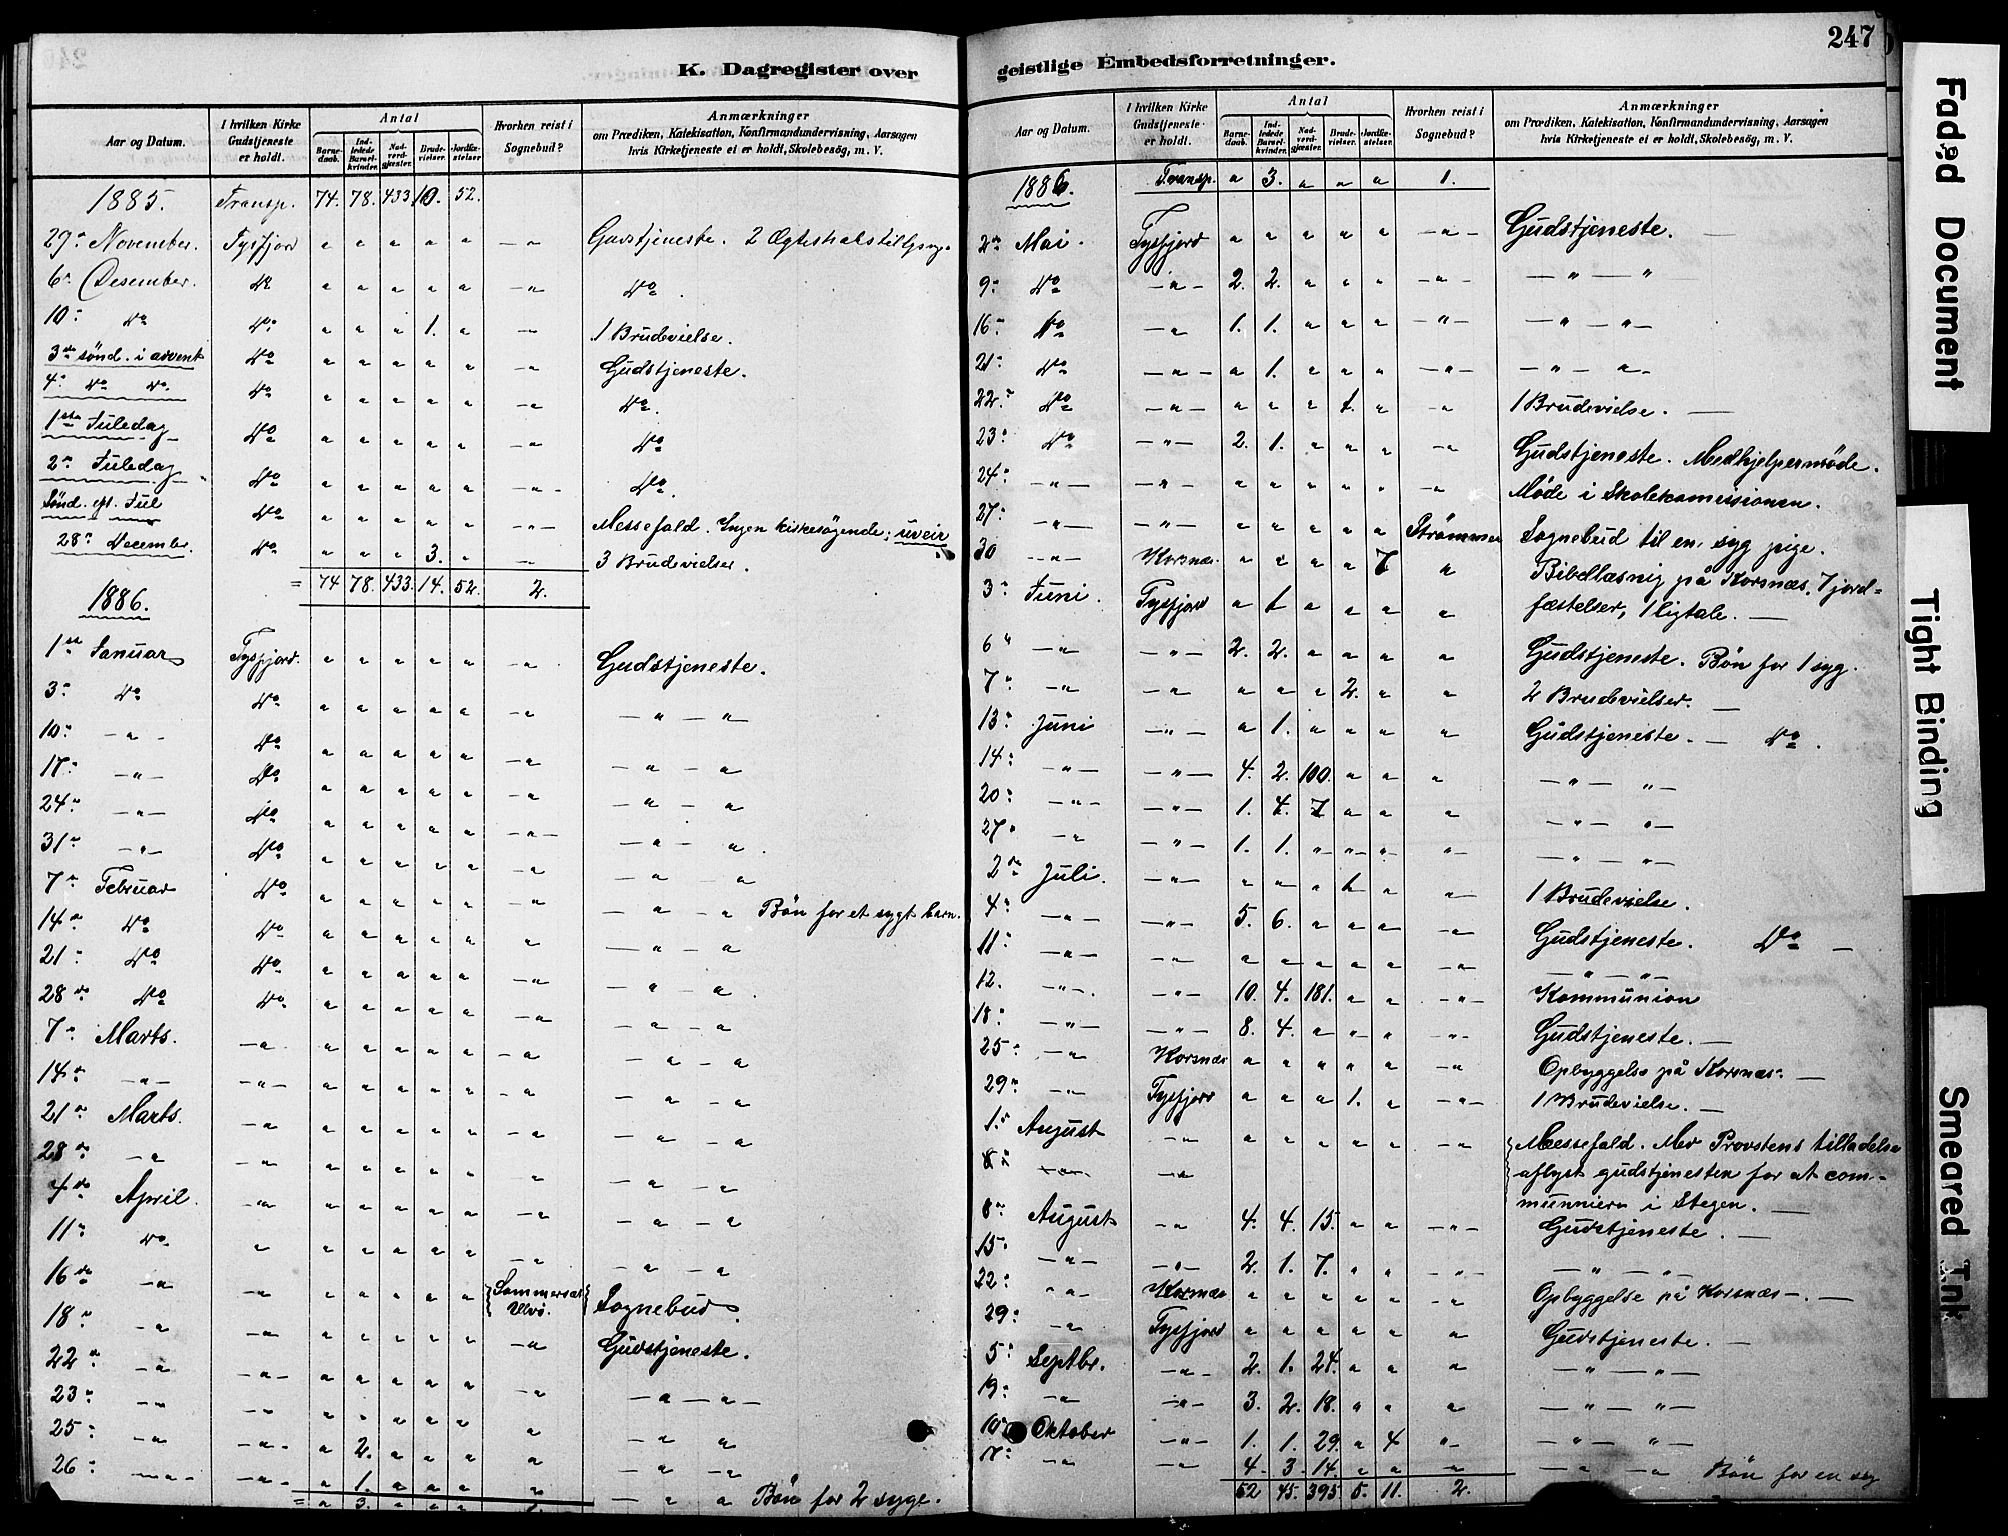 247
K. Dagregister over
geistlige Embedsforretninger.
Aar og Datum. I hvilken Kirke Gudstjeneste er holdt. Antal Barnedaab. Indledede Barselkvinder. Nadverdgjæster. Brudevielser. Jordfæstelser. Hvorhen reist i Sognebud? Anmærkninger om Prædiken, Katekisation, Konfirmandundervisning, Aarsagen hvis Kirketjeneste ei er holdt, Skolebesög, m. V.
1885. Transp. 74. 78. 433. 10. 52.
29 November. Tysfjord " " " " " — " 2
6 Desember. Do " " " " " — " Do.
10 Do Do " " " 1. " — " 1 Brudevielse.
3die sönd. i advent Do " " " " " — " Gudstjeneste.
4 Do Do. Do " " " " " — " Do.
1ste Juledag Do " " " " " — " Do
2 Juledag Do " " " " " — " — Do.
Sönd. eft. Jul Do " " " " " — " — Messefald. Ingen kirkesögende; uveir
28 December. Do " " " 3. " — " 3 Brudevielser.
= 74 78. 433. 14. 52. 2.
1886.
1ste Januar Tysfjord. " " " " " — " Gudstjeneste.
3 Do Do " " " " " — " — " — "
10 — " — Do " " " " " — " — " — "
17 — " — Do " " " " " — " — " — "
24 — " — Do " " " " " — " — — " — "
31 — " — Do " " " " " — " — " — "
7 Februar Do " " " " " — " — " — " Bön for et sygt barn.
14 Do Do " " " " " " — " — "
21 Do Do " " " " " — " — " — "
28 Do Do " " " " " — " — " — "
7 Marts. — " " " " " " — " — " — "
14 — " — — " — " " " " " — " — " — "
21 Marts. — " " " " " " — " — " — "
28 — " — " " " " " " — " — " — "
4 April — " " " " " " — " — " — "
11 Do. " " " " " " — " — " — "
16 — " — " " " " " " Ulvö. Sognebud.
18 — " — " " " " " " — " Gudstjeneste.
22 — " — " — " " " " " — " — " — " —
23 — " — " " " " " " " — " — "
25 — " — " — " 2. " " " " — " — "
26 — " — — " — " 1. " " " " — " — " Bön for 2 syge.
= " 3. " " " 1.
Aar og Datum. I hvilken Kirke Gudstjeneste er holdt. Antal Barnedaab. Indledede Barselkvinder. Nadverdgjæster. Brudevielser. Jordfæstelser. Hvorhen reist i Sognebud? Anmærkninger om Prædiken, Katekisation, Konfirmandundervisning, Aarsagen hvis Kirketjeneste ei er holdt, Skolebesög, m. V.
1886. Transp. " 3. " " " 1.
2 Mai. Tysfjord " " " " " — " — Gudstjeneste. —
9 Do — " — 2. 2. " " " — " — — " — "
16 Do — " 1. 1. " " " — " — — " — " —
21 Do — " — " 1. " " " — " — — " — " —
22 Do — " — " " " 1. " — " 1 Brudevielse. —
23 Do — " — 2. 1. " " " — " Gudstjeneste. Medhjelpermöde.
24 — " — — " — " " " " " — " Möde i Skolekomissionen.
27 — " — — " — " " " " " Strömmen Sognebud til en syg pige.
30 — " Korsnæs. " " " " 7 " Bibellæsnig på Korsnæs. 7 jord=
3 Juni. Tysfjord " 1 " " " " fæstelser, 1 ligtale. —
6 — " — " — 2. 2. " " " " Gudstjeneste. Bön for 1 syg.
7 — " — " " " " 2. " " 2 Brudevielser. —
13 Juni — " — " 1. " " " " Gudstjeneste. — Do.
14 — " — — " — 4. 2. 100. " " " — " — " —
20 — " — — " — 1. 4. 7 " " " — " — " —
27 — " — " — 1. 1. " " " " — " — " —
2 Juli. — " — " " " 1 " — " 1 Brudevielse.
4 — " — — " — 5. 6. " " " — " Gudstjeneste. Do —
11 — " — — " " " " " " — " — " — " —
12. — " — — " 10. 4. 181. " " — " — Kommunion
18 — " — — " — 8. 4. " " " — " — Gudstjeneste. —
25 — " Korsnæs " " " " " — " Opbyggelse på Korsnæs. —
29 — " Tysfjord " " " 1. " — " — 1 Brudevielse. —
1 August — " " " " " " — " Messefald. Med Provstens tilladelse
aflyst gudstjenesten for at com-
munniera i Stegen. —
8 August — " 4. 4. 15. " " — " — Gudstjeneste. —
15 — " — — " — 2. 1. 7. " " — " — — " — — " —
22 — " Korsnæs " " " " " — " Opbyggelse på Korsnæs —. —
29 — " Tysfjord " " " " " " Gudstjeneste. —
5 Septbr. — " — 2. 1. 24. " " " — " — " —
19 — " — " — 3. 2. 18. " " " — " — " —
10 Oktober — " — 1. 1. 29. " 4 " — " — " —
17 — " — " 4. 3. 14. " " " — " — " Bön for en syg
52 45. 395. 5. 11. 2.
Faded Document
Tight Binding
Smeared Ink